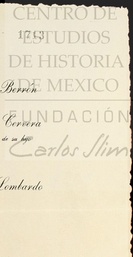 CENTRO DE
1713
ESTUDIOS
DE HISTORIA
Berrón
DE MEXICO
FUNDACIÓN
Cervera
de su hijo
Carlos Slim
Lombardo